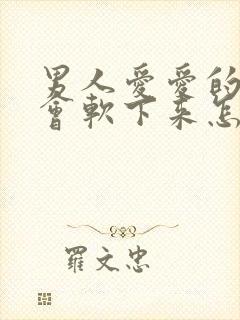 男人愛愛的
會軟下來怎
羅文忠